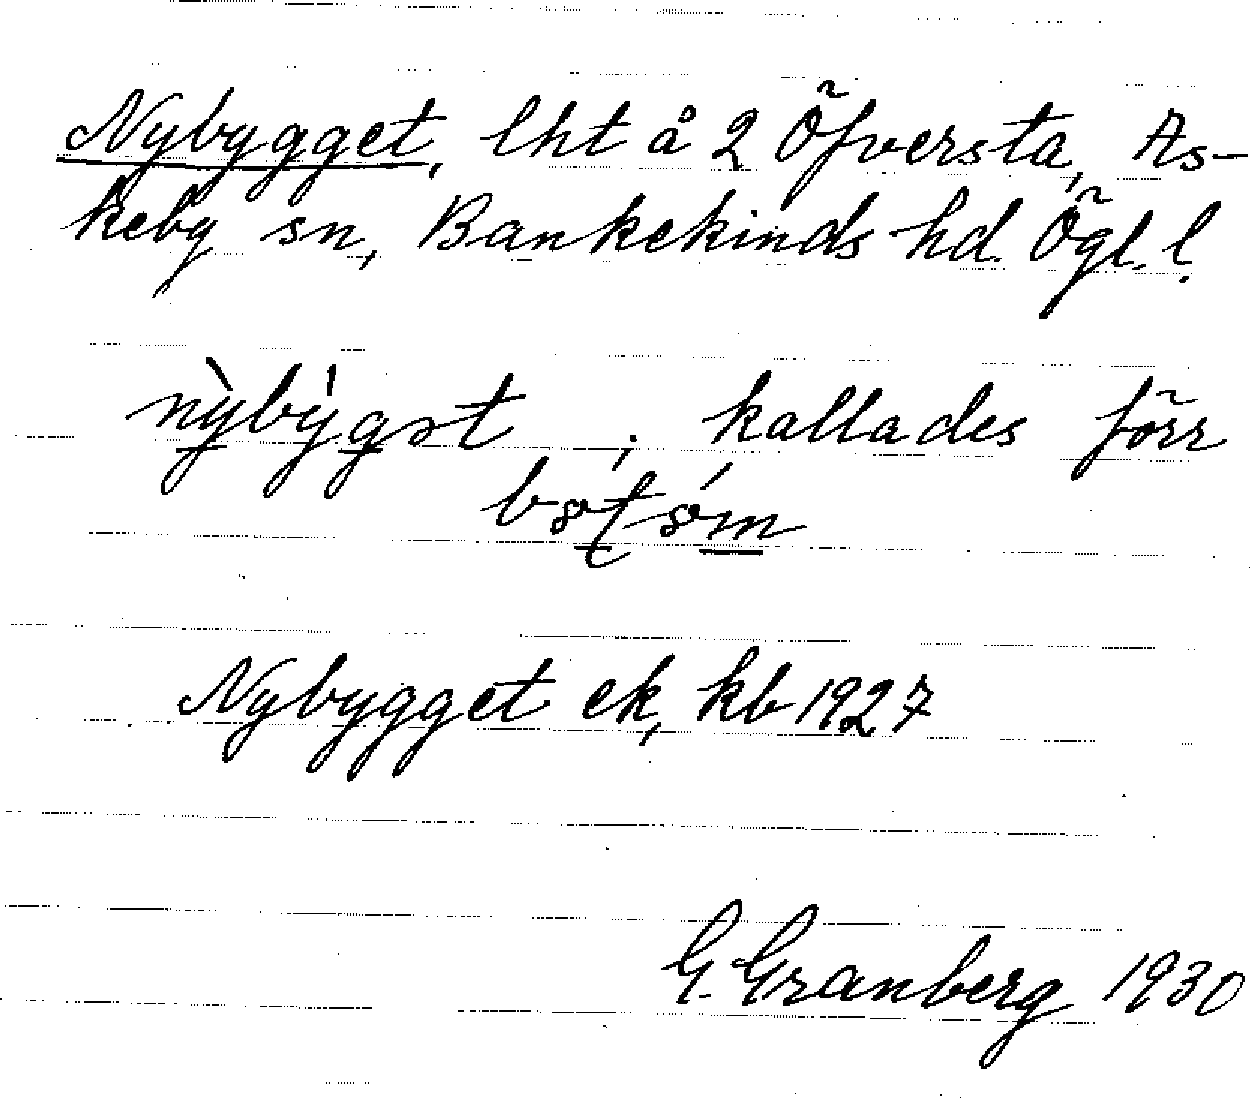 Nybygget, lht å 2 Öfversta, As-
keby sn, Bankekinds hd. Ögl. l.
nỳbýgət ; kallades förr
Nybygget ek, kb 1927
G. Granberg 1930